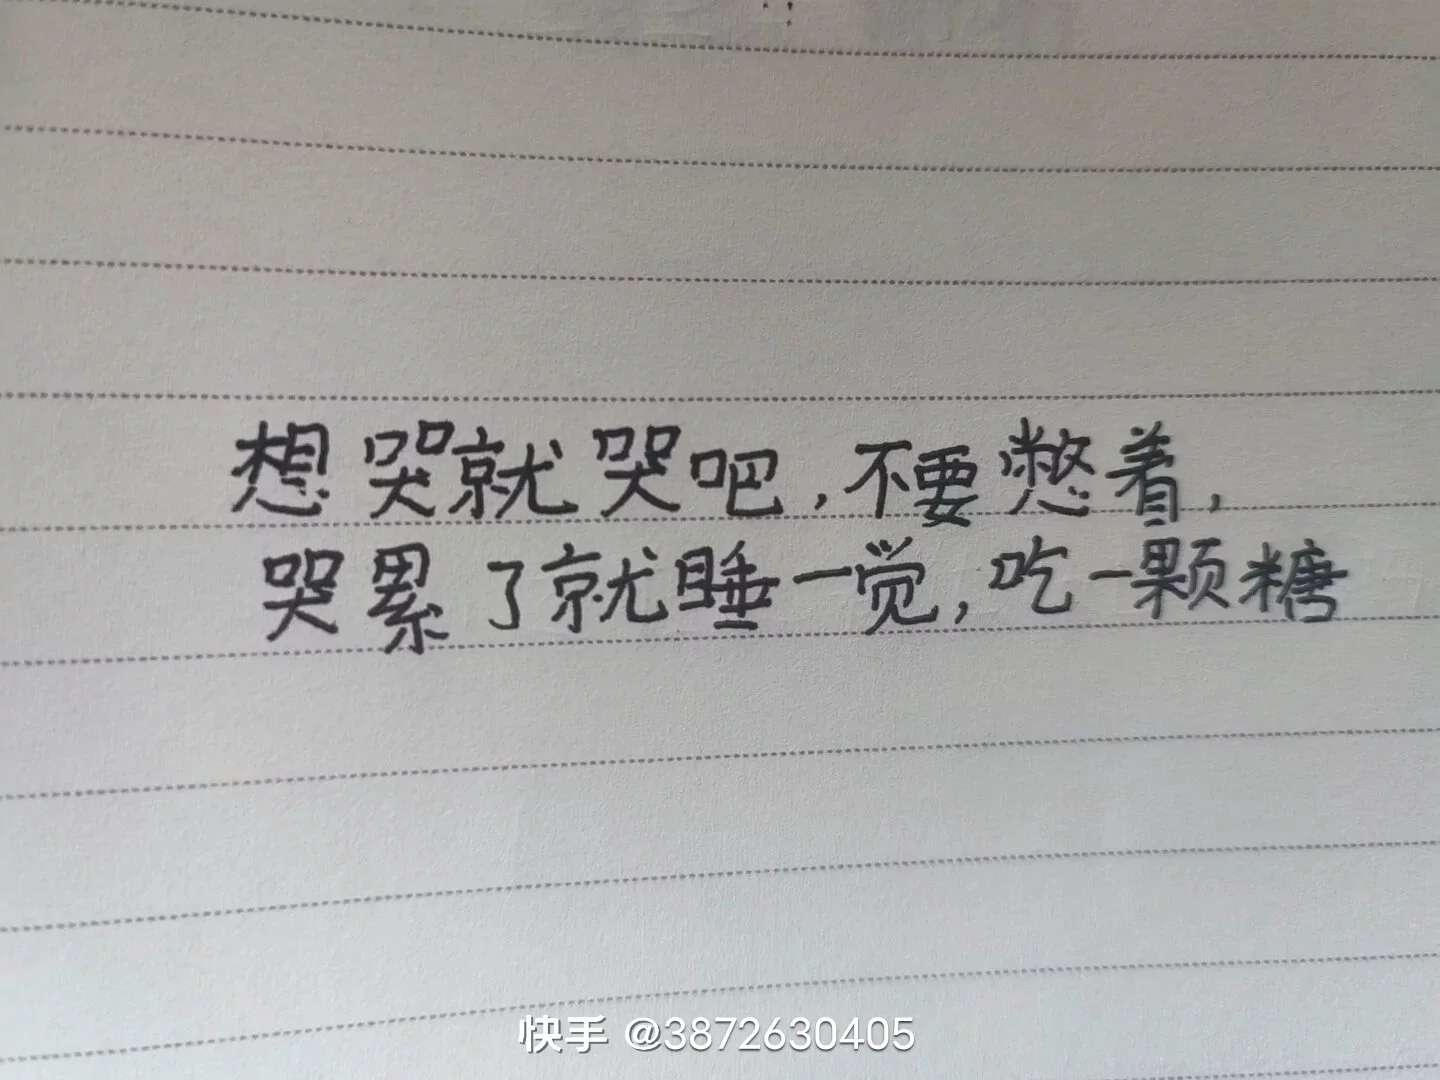 想哭就哭吧,不要憋着,
哭累了就睡一觉,吃一颗糖
快手 @3872630405